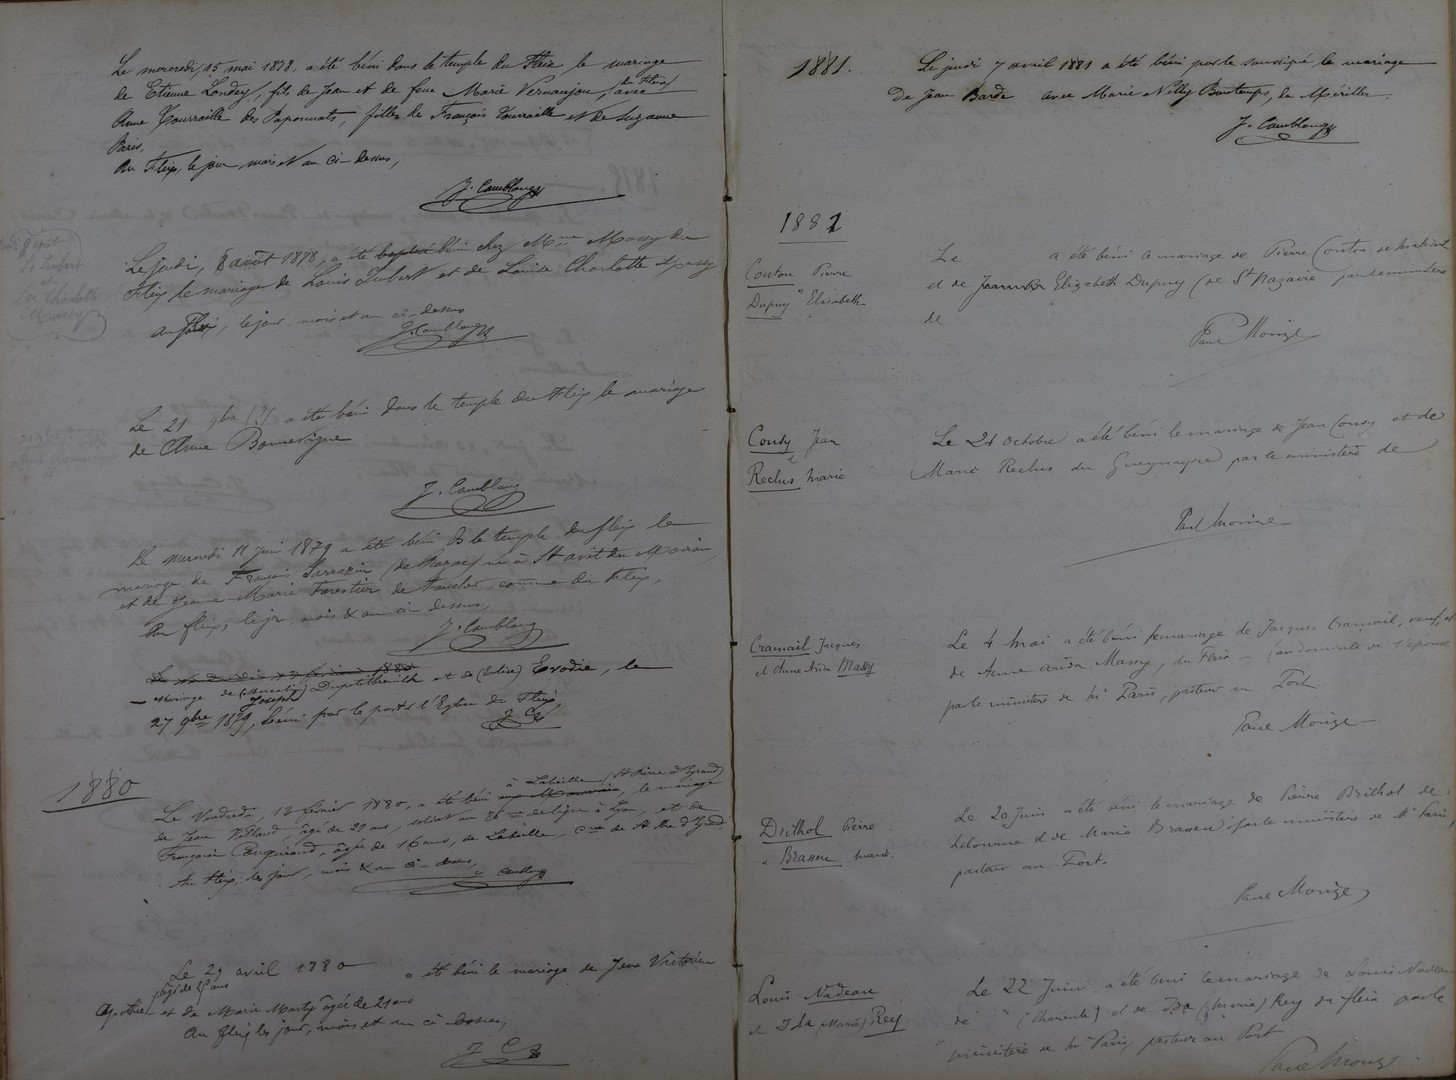 Le mercredi, 15 mai 1878, a été béni dans le temple du Fleix le mariage
de Etienne Londey, fils de Jean et de feue Marie Vernanjou, (du Fleix) avec
Anne Tourraille des Paponnats, fille de François Tourraille et de Suzanne
Paris.
Au Fleix, le jour, mois et an ci-dessus,
J. Camblong
Le jeudi, 8 août 1878, a été béni chez Mme Massy du
Fleix le mariage de Louis Jubert et de Louise Charlotte Massy
au Fleix, le jour, mois et an ci-dessus
J. Camblong
Le 21 9bre (?) a été béni dans le temple du Fleix le mariage
de Anne Bonnevigne
J. Camblong
Le mercredi 11 juin 1879 a été béni ds le temple du fleix le
mariage de François Sarrazin (de Razac) né à St avit du Moiron,
et de Jeanne Marie Forestier de commune du Fleix,
Au fleix, le jr, mois & an ci-dessus,
J. Camblong
mariage de (Marcelin) Joseph et de (Elisa) Erodie, le
27 9bre 1879, béni par le past. de l'Eglise du Fleix,
J C
1880
Le Vendredi, 13 février 1880, a été béni à Labeille (St Pierre d'Eyraud) le mariage
de Jean Villaud, âgé de 21 ans, soldat au de ligne à Lyon, et de
Françoise âgée de 16 ans, de Labeille, cne de St Pre d'Eyraud
Au Fleix, les jour, mois & an ci-dessus,
J. Camblong
Le 29 avril 1880 a été béni le mariage de Jean Victorien
âgé de 25 ans
et de Marie Marty âgée de 21 ans
Au fleix les jour, mois et an ci-dessus,
J C
1881.
Le jeudi 7 avril 1881 a été béni par le soussigné le mariage
De Jean Barde avec Marie Nelly Bontemps, du Mériller.
J. Camblong
1882
Couton Pierre
Dupuy Elisabeth
Le a été béni le mariage de Pierre Couton de
et de Elizabeth Dupuy (de St Nazaire par le ministère
de
Paul Morize
Coussy Jean
&
Reclus Marie
Le 24 octobre a été béni le mariage de Jean Coussy et de
Marie Reclus du par le ministère de
Paul Morize
Cramail Jacques
et Anne Aïda Massy
Le 4 Mai a été béni le mariage de Jacques Cramail, veuf, et
de Anne Aïda Massy, du Fleix - (au domicile de l'épouse
par le ministère de Mr Paris, pasteur au Fort
Paul Morize
Drilhol Pierre
& Brassen Marie.
Le 20 Juin a été béni le mariage de Pierre Drilhol de
Libourne et de Marie Brassen par le ministère de Mr Paris,
pasteur au Fort.
Paul Morize
Louis Nadeau
et Ida (Marie) Rey
Le 22 Juin a été béni le mariage de Louis Nadeau
de " " (Charente) et de Ida (Marie) Rey du fleix par le
ministère de Mr Paris, pasteur au Fort
Paul Morize